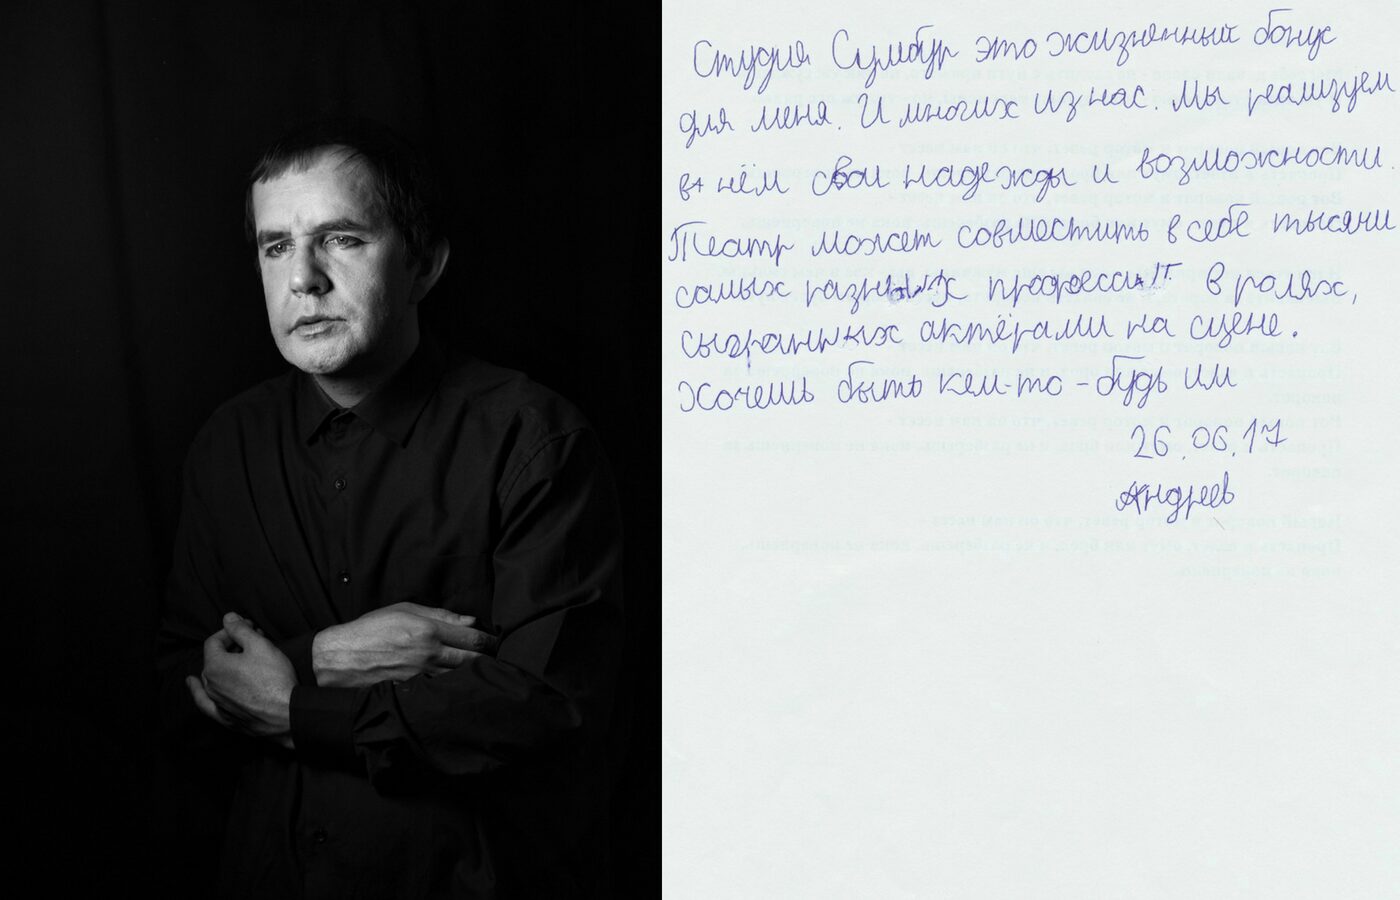 Студия Сумбур это жизненный бонус
для меня. И многих из нас. Мы реализуем
в нём свои надежды и возможности.
Театр может совместить в себе тысячи
самых разных профессий в ролях,
сыгранных актёрами на сцене.
Хочешь быть кем-то - будь им
26.06.17
Андреев